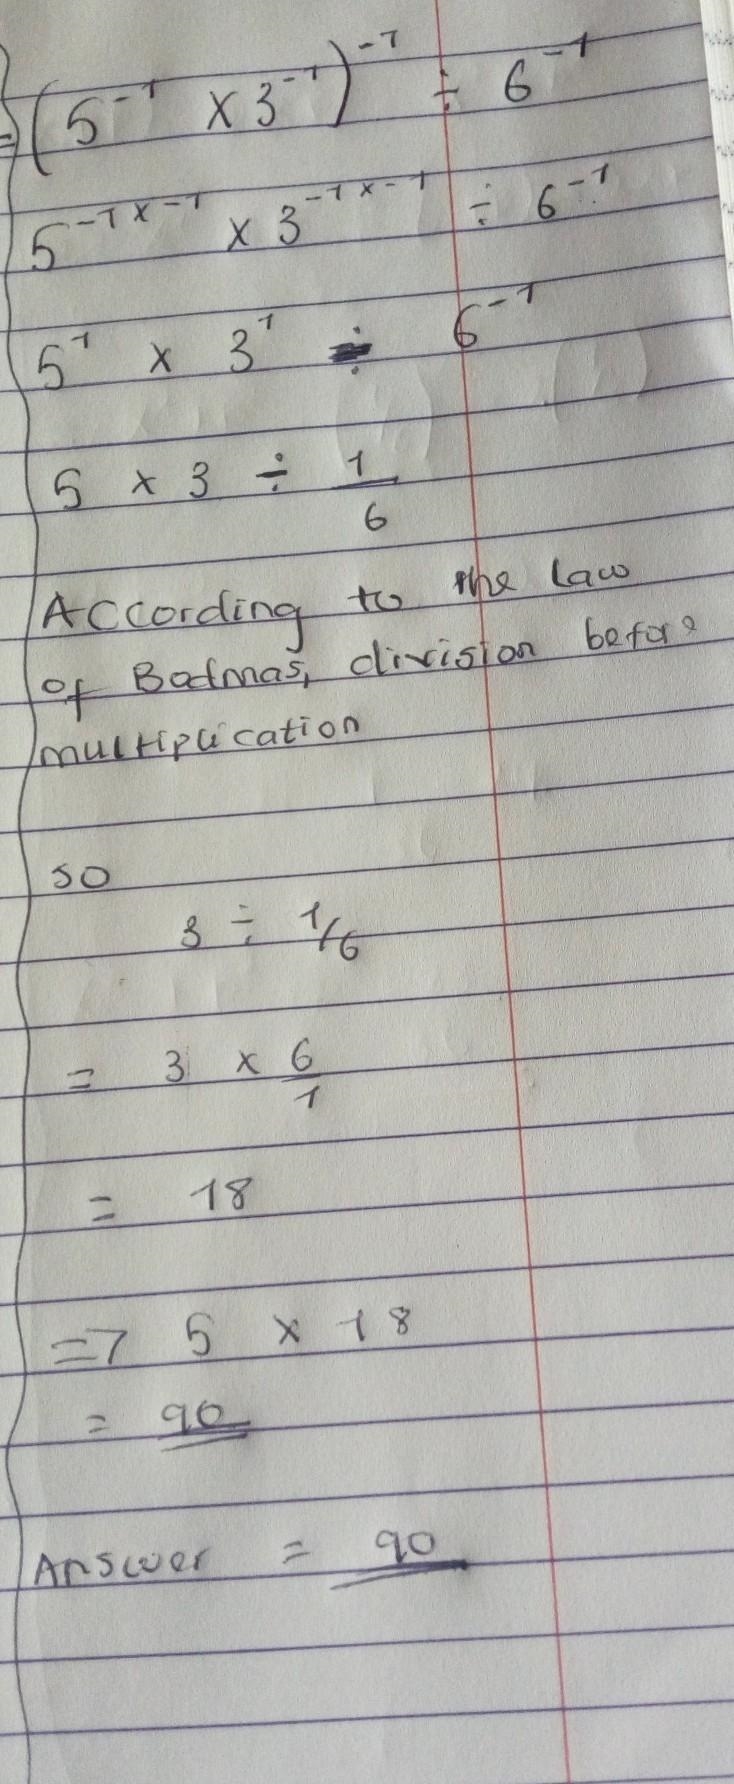 = (5⁻¹ × 3⁻¹)⁻¹ ÷ 6⁻¹
5⁻¹ˣ⁻¹ × 3⁻¹ˣ⁻¹ ÷ 6⁻¹
5¹ × 3¹ ÷ 6⁻¹
5 × 3 ÷ 1/6
According to the law
of Bodmas, division before
multiplication
so
3 ÷ 1/6
= 3 × 6/1
= 18
=> 5 × 18
= 90
Answer = 90